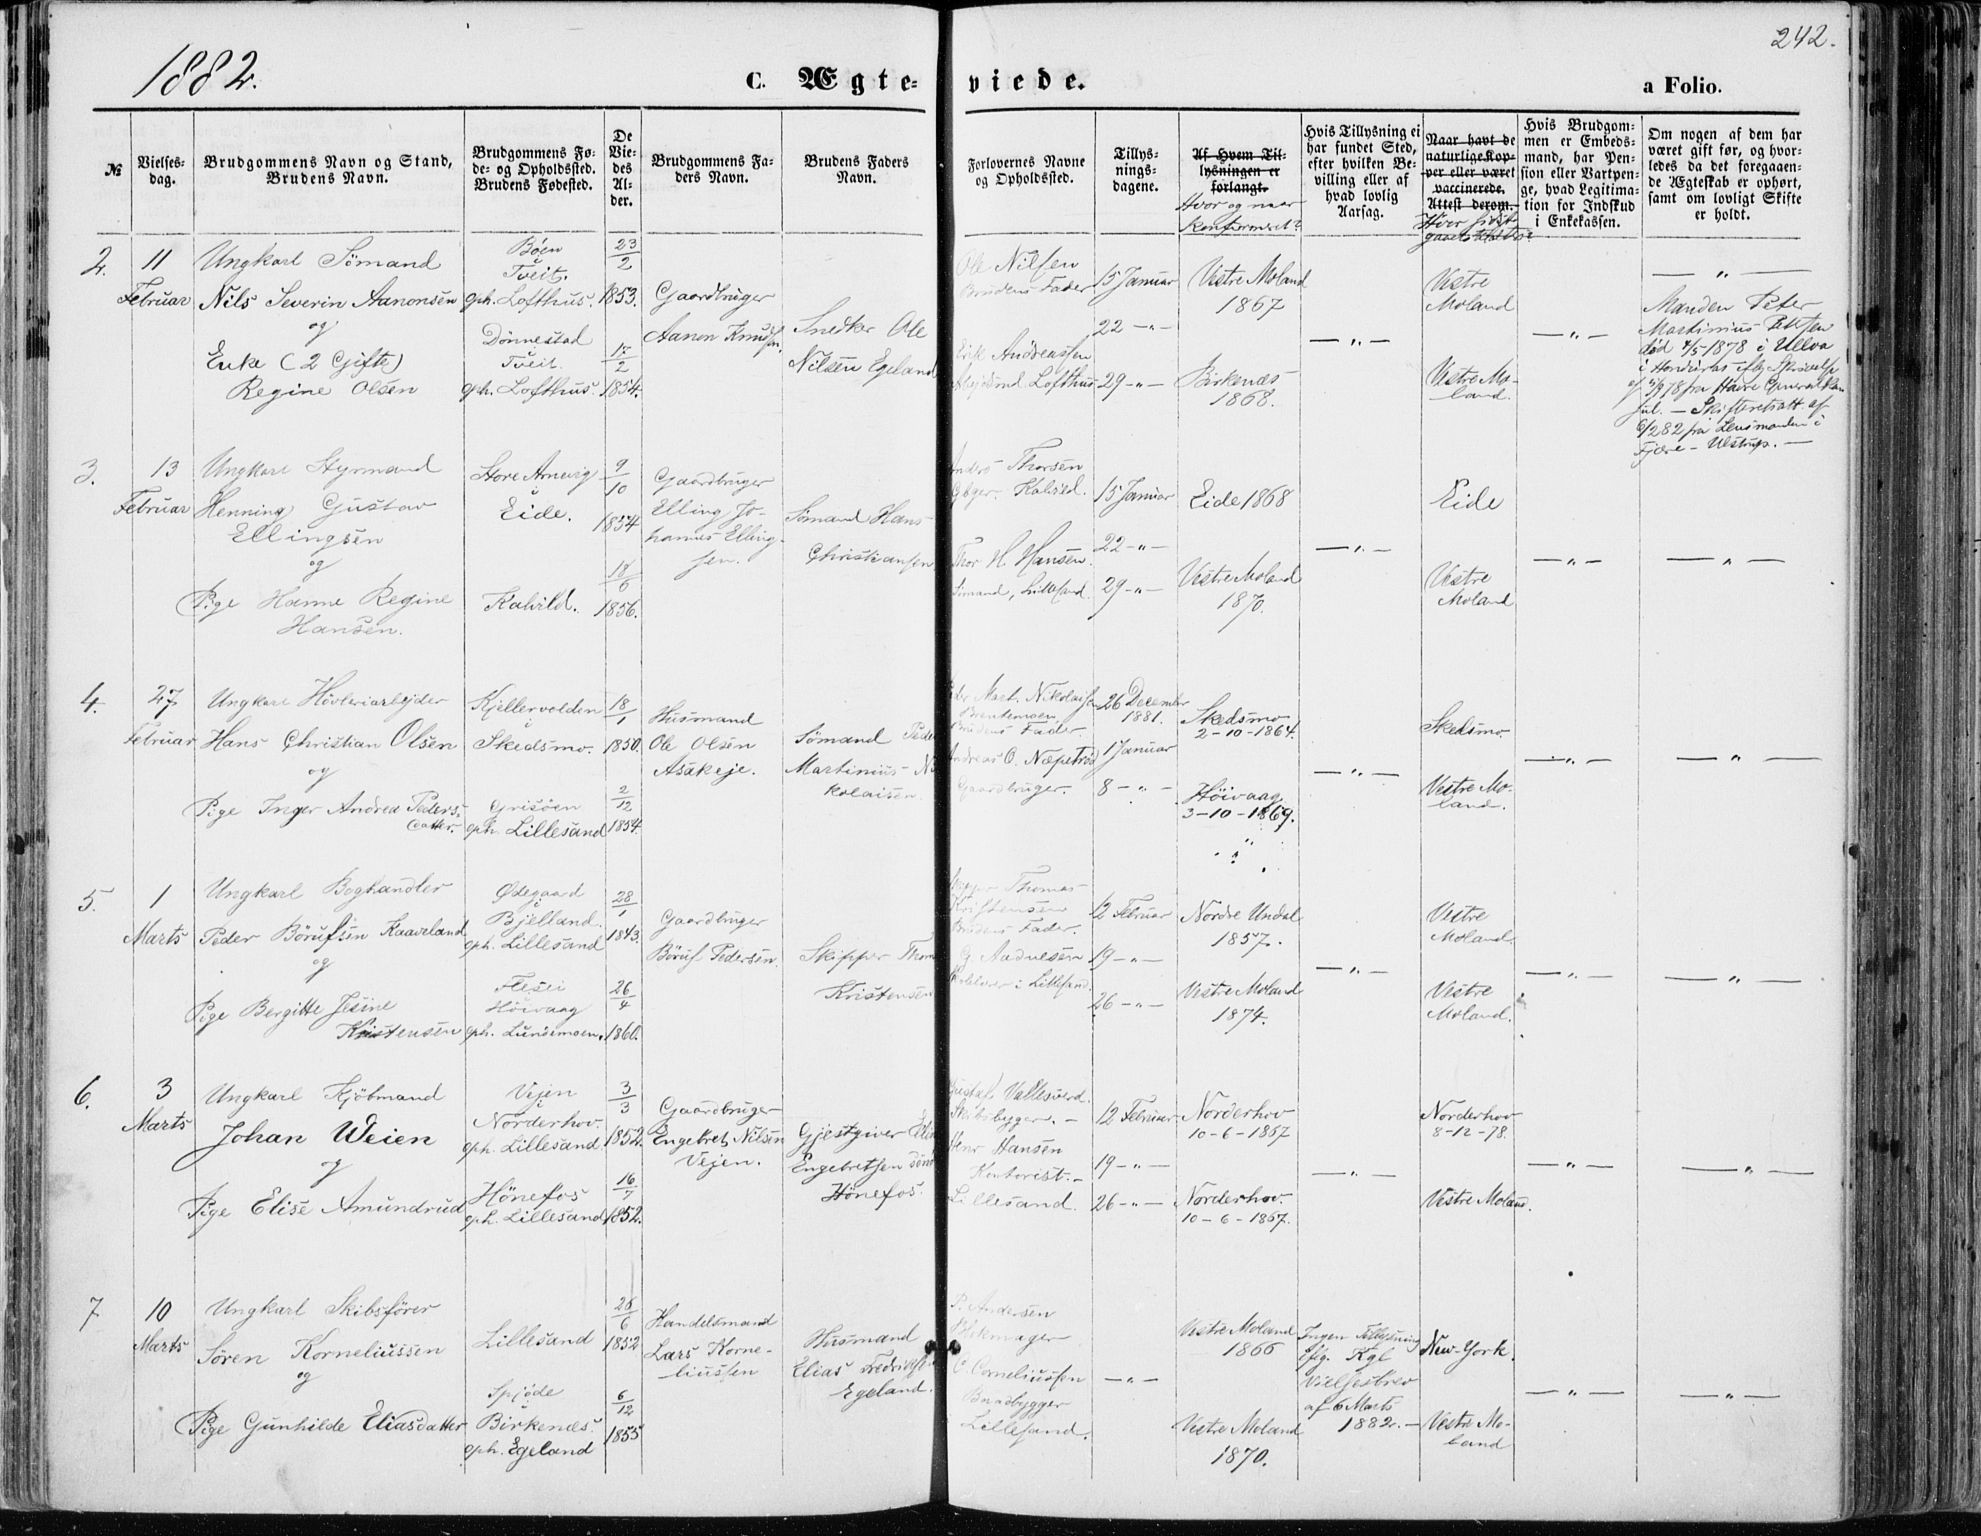 1882.
C. Ægte-
viede.
242.
a Folio.
№
Vielses-
dag.
Brudgommens Navn og Stand,
Brudens Navn.
Brudgommens Fø-
de- og Opholdssted.
Brudens Fødested.
De
Vie-
des
Al-
der.
Brudgommens Fa-
ders Navn.
Brudens Faders
Navn.
Forlovernes Navne
og Opholdssted.
Tillys-
nings-
dagene.
Af Hvem Til-
lysningen er
forlangt.
Hvor og naar
konfirmeret?
Hvis Tillysning ei
har fundet Sted,
efter hvilken Be-
villing eller af
hvad lovlig
Aarsag.
Naar havt de
naturlige Kop-
per eller været
vaccinerede.
Attest derom.
Hver sidst
gaaet til Alters?
Hvis Brudgom-
men er Embeds-
mand, har Pen-
sion eller Vartpen-
ge, hvad Legitima-
tion for Indskud
i Enkekassen.
Om nogen af dem har
været gift før, og hvor-
ledes da det foregaaen-
de Ægteskab er ophørt,
samt om lovligt Skifte
er holdt.
2.
11
Februar
Ungkarl Sömand
Nils Severin Aanonsen
og
Enke (2 Gifte)
Regine Olsen
Böen
i
Tveit.
oph. Lofthus.
Dönnestad
i
Tveit.
oph. Lofthus.
23/2
1853.
17/2
1854.
Gaardbruger
Aanon Knudsen.
Snedker Ole
Nilsen Egeland
Ole Nilsen
Brudens Fader
Erik Andreassen
Lofthus
15 Januar
22 -"-
29 -"-
Vestre Moland
1867
Birkenæs
1868.
— " —
Vestre
Moland
Vestre Mo-
land.
— " —
— " —
Manden Peter
Martinius Pettersen
död 4/5 1878 i Ulloa
i Honduras iflg Skrivelse
af 4/9 78 fra Havre Generalkon
sul. — Skifteretsatt. af
6/2 82 fra Lensmanden i
Fjære - Ulstrup. —
3.
13
Februar
Ungkarl Styrmand
Henning Gustav
Ellingsen
og
Pige Hanne Regine
Hansen.
Store Arnevig
i
Eide.
Kalvild.
9/10
1854
18/6
1856.
Gaardbruger
Elling Jo-
hannes Elling-
sen.
Sömand Hans
Christiansen
Anders Thorsen
Gbger. Kalvild.
Thor H. Hansen.
Sömand, Lillesand.
15 Januar
22 -"-
29 -"-
Eide 1868
Vestre Moland
1870.
— " —
Eide
Vestre
Moland
— " —
— " —
4.
27
Februar
Ungkarl Hövleriarbejder
Hans Christian Olsen
og
Pige Inger Andrea Peders-
datter.
Kjellervolden
i
Skedsmo.
Grisöen
oph. Lillesand
18/1
1850.
2/12
1854.
Husmand
Ole Olsen
Asakeje.
Sömand Peder
Martinius Ni
kolaisen
Peder Mart. Nikolaisen
Brentemoen
Brudens Fader.
Andreas O. Næpetvid
Gaardbruger.
26 December
1881.
1 Januar
8 -"-
Skedsmo
2-10-1864.
Höivaag
3-10-1869.
"
— " —
Skedsmo.
Vestre Mo-
land.
— " —
— " —
5.
1
Marts
Ungkarl Boghandler
Peder Börufsen Kaaveland
og
Pige Bergitte Jesine
Kristensen
Ødegaard
i
Bjelland.
oph. Lillesand
Flesei
Höivaag
oph. Lundemoen.
28/1
1843.
26/4
1860.
Gaardbruger
Böruf Pedersen.
Skipper Thom
Kristensen
Skipper Thomas
Kristensen
Brudens Fader.
G. Aadnesen
i Lillesand.
12 Februar
19 -"-
26 -"-
Nordre Undal
1857.
Vestre Moland
1874.
— " —
Vestre
Moland.
Vestre
Moland.
— " —
— " —
6.
3
Marts
Ungkarl Kjöbmand
Johan Weien
og
Pige Elise Amundrud
Vejen
i
Norderhov.
oph. Lillesand.
Hönefos
oph. Lillesand
3/3
1852.
16/7
1852.
Gaardbruger
Engebret Nilsen
Vejen.
Gjestgiver
Engebretsen
Hönefos.
Gustaf Vallesverd.
Skibsbygger. -
Henr Hansen
Kontorist. -
Lillesand.
12 Februar
19 -"-
26 -"-
Norderhov
10-6-1867
Norderhov
10-6-1867.
— " —
Norderhov
8-12-78.
Vestre Moland.
— " —
— " —
7
10
Marts
Ungkarl Skibsförer
Sören Korneliussen
og
Pige Gunhilde Eliasdatter
Lillesand
Spjöde
i
Birkenæs.
oph. Egeland
26/6
1852
6/12
1855
Handelsmand
Lars Korne-
liussen
Husmand
Elias Fredriksen
Egeland.
P. Andersen
Blokmager
C. Corneliussen
Baadbygger
Lillesand.
— " —
Vestre Moland
1866
Vestre Moland
1870.
Ingen Tillysning
iflg. Kgl
Vielsesbrev
af 6 Marts
1882. -
New-York.
Vestre Mo-
land
— " —
— " —